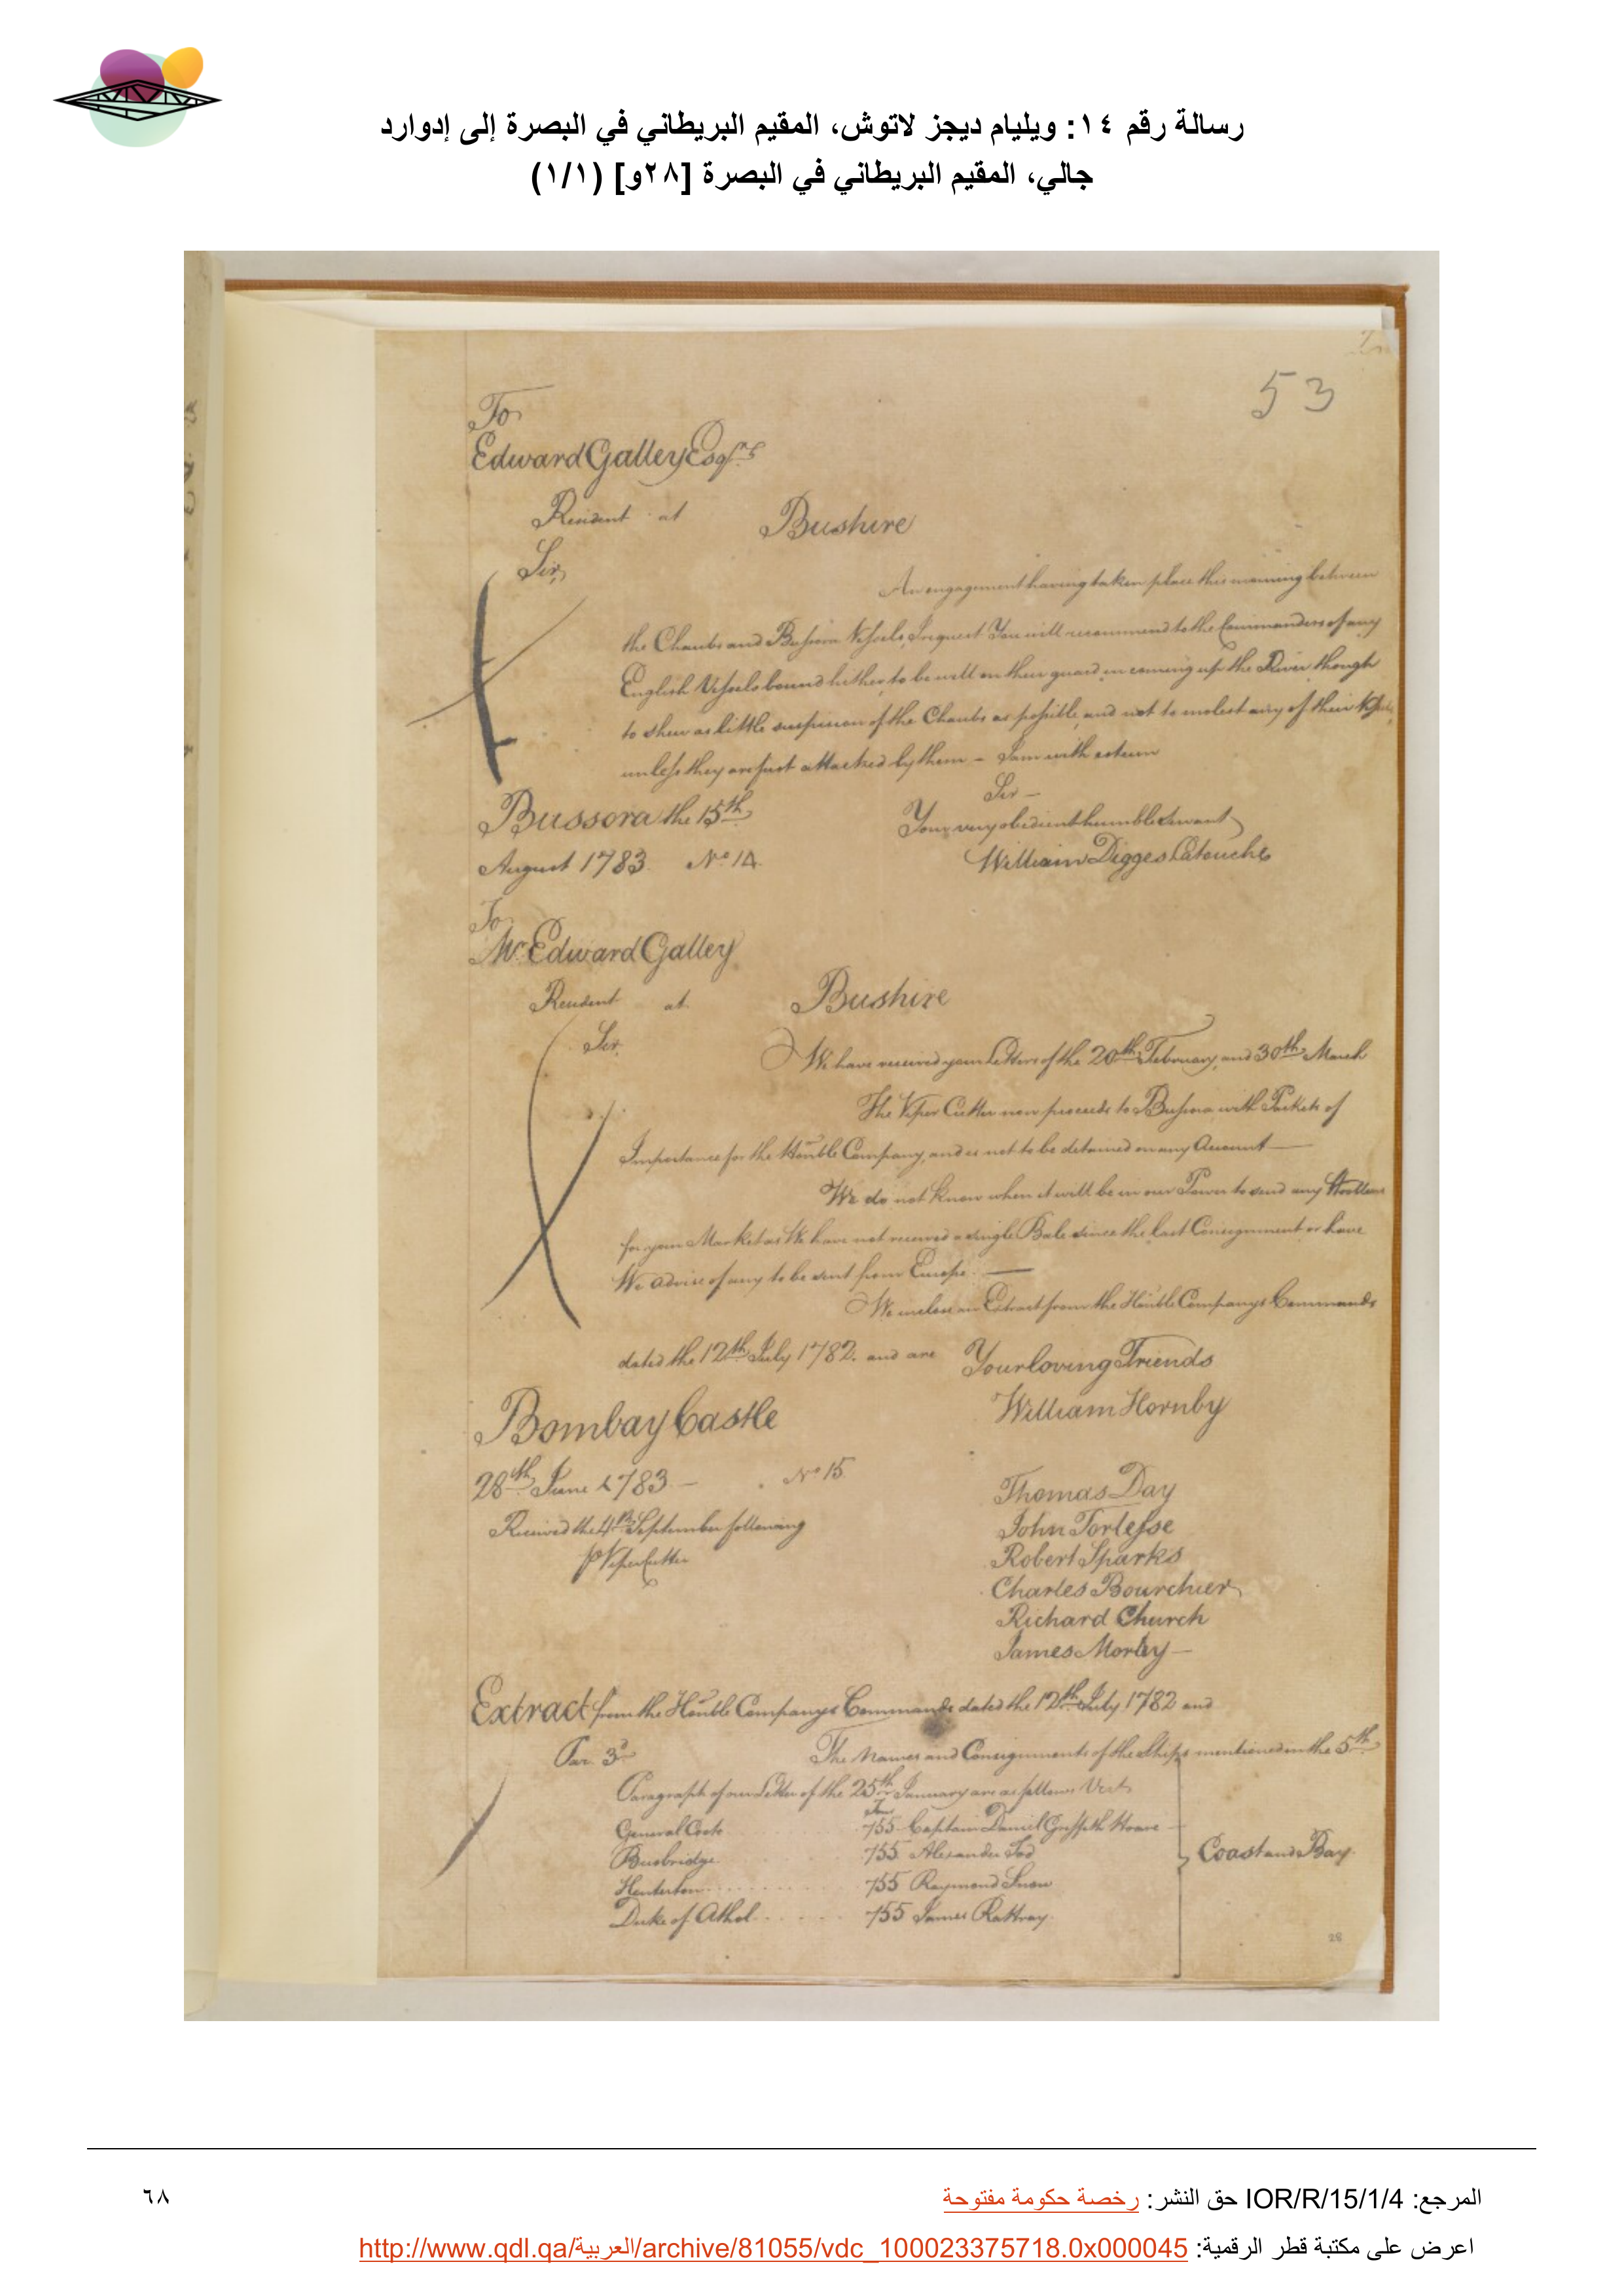 رسالة رقم ١٤: ويليام ديجز لاتوش، المقيم البريطاني في البصرة إلى إدوارد
جالي، المقيم البريطاني في البصرة [٢٨و] (١/١)
53
To
Edward Galley Esqrs
Resident at Bushire
Sir,
An engagement having taken place this morning between
the Chaubs and Bussora Vessels, I request You will recommend to the Commanders of any
English Vessels bound hither, to be well on their guard in coming up the River, though
to shew as little suspicion of the Chaubs as possible, and not to molest any of their Vessels,
unless they are first attacked by them – I am with esteem
Sir –
Bussora the 15th
Your very obedient humble Servant
August 1783 No 14
William Digges Latouche
To
Mr Edward Galley
Resident at Bushire
Sir,
We have received your Letters of the 20th February, and 30th March
The Viper Cutter now proceeds to Bussora with Packets of
Importance for the Honble Company, and is not to be detained on any Account —
We do not know when it will be in our Power to send any Woollens
for your Market as We have not received a single Bale since the last Consignment or have
We advise of any to be sent from Europe. —
We inclose an Extract from the Honble Companys Commands
dated the 12th July 1782. and are Your loving Friends
Bombay Castle
William Hornby
28th June 1783 – No 15
Thomas Day
Received the 4th September following
John Torlesse
P Viper Cutter
Robert Sparks
Charles Bourchier
Richard Church
James Morley –
Extract from the Honble Companys Commands dated the 12th July 1782 and
Par. 3d The Names and Consignments of the Ships mentioned in the 5th
Paragraph of our Letter of the 25th January are as follows Vizt
Tons
General Coote 755 Captain Daniel Griffith Hoare
Busbridge 755 Alexander Tod
Coast and Bay.
755 Raymond Snow
Duke of Athol 755 James Rattray
28
المرجع: IOR/R/15/1/4 حق النشر: رخصة حكومة مفتوحة
٦٨
اعرض على مكتبة قطر الرقمية: http://www.qdl.qa/العربية/archive/81055/vdc_100023375718.0x000045